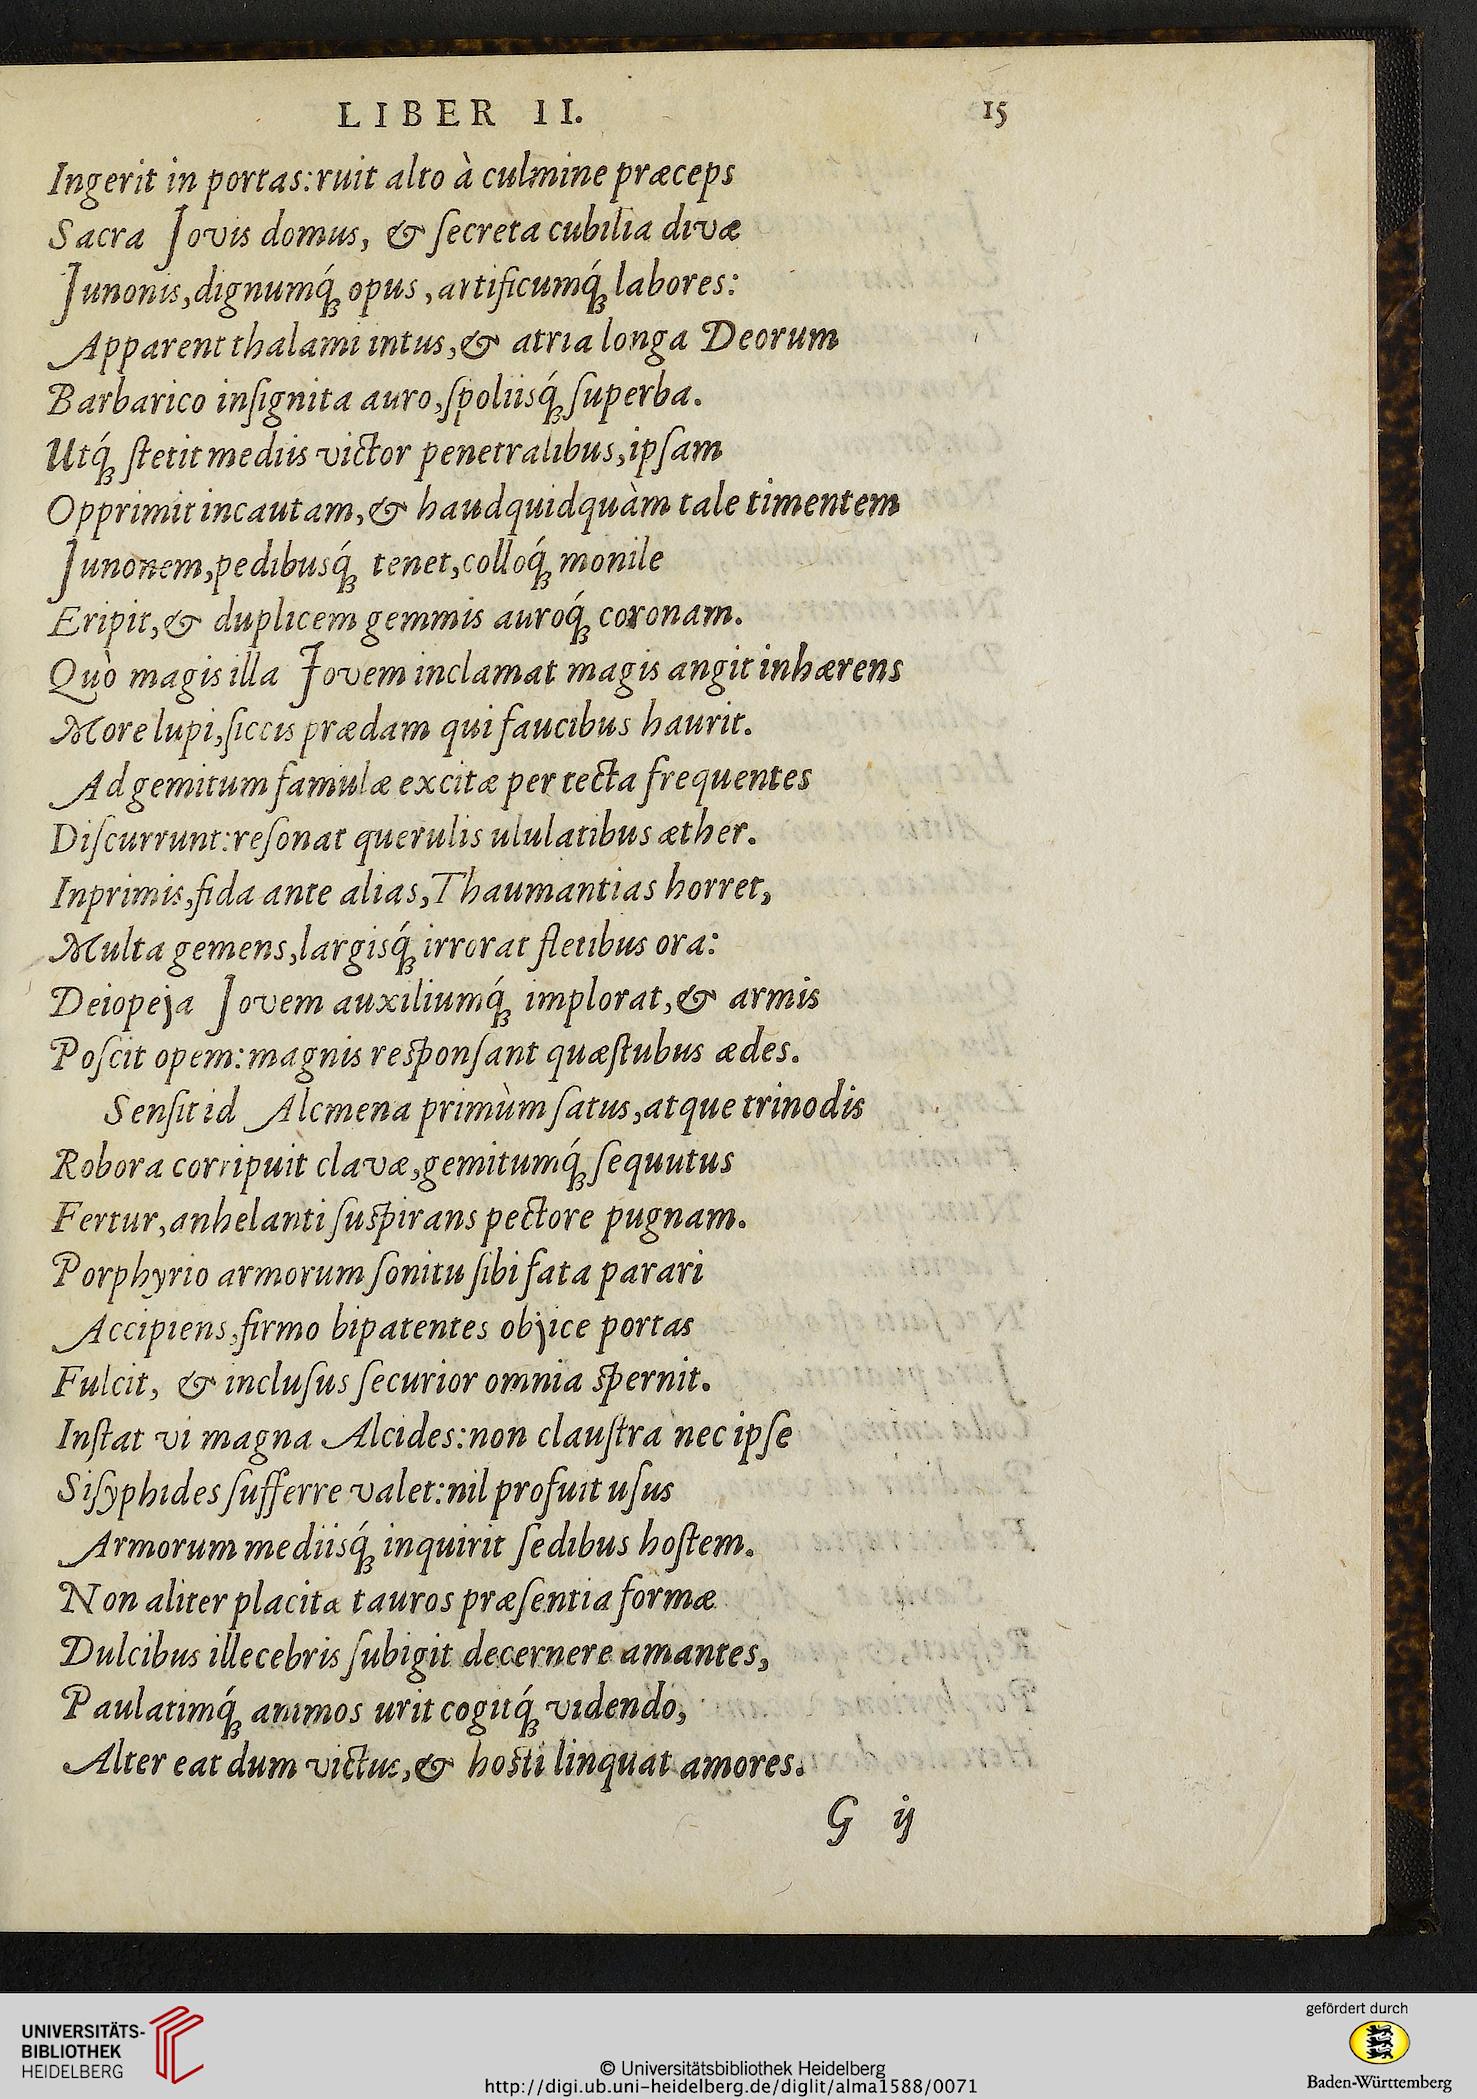 LIBER II. 15
Ingerit in portas: ruit alto à culmine præceps
Sacra Jovis domus, & ſecreta cubilia divæ
Junonis, dignumq́ꝫ opus, artificumq́ꝫ labores:
Apparent thalami intus, & atria longa Deorum
Barbarico inſignita auro, ſpoliisq́ꝫ ſuperba.
Utq́ꝫ ſtetit mediis victor penetralibus, ipſam
Opprimit incautam, & haudquidquàm tale timentem
Junonem, pedibusq́ꝫ tenet, colloq́ꝫ monile
Eripit, & duplicem gemmis auroq́ꝫ coronam.
Quò magis illa Jovem inclamat magis angit inhærens
More lupi, ſiccis prædam qui faucibus haurit.
Ad gemitum famulæ excitæ per tecta frequentes
Diſcurrunt: reſonat querulis ululatibus æther.
Inprimis, fida ante alias, Thaumantias horret,
Multa gemens, largisq́ꝫ irrorat fletibus ora:
Deiopeja Jovem auxiliumq́ꝫ implorat, & armis
Poſcit opem: magnis reſponſant quæſtubus ædes.
Senſit id Alcmena primùm ſatus, atque trinodis
Robora corripuit clavæ, gemitumq́ꝫ ſequutus
Fertur, anhelanti ſuſpirans pectore pugnam.
Porphyrio armorum ſonitu ſibi fata parari
Accipiens, firmo bipatentes objice portas
Fulcit, & incluſus ſecurior omnia ſpernit.
Inſtat vi magna Alcides: non clauſtra nec ipſe
Siſyphides ſufferre valet: nil profuit uſus
Armorum mediisq́ꝫ inquirit ſedibus hoſtem.
Non aliter placitæ tauros præſentia formæ
Dulcibus illecebris ſubigit decernere amantes,
Paulatimq́ꝫ animos urit cogitq́ꝫ videndo,
Alter eat dum victus, & hoſti linquat amores.
G ij
UNIVERSITÄTS-
BIBLIOTHEK
HEIDELBERG
© Universitätsbibliothek Heidelberg
http://digi.ub.uni-heidelberg.de/diglit/alma1588/0071
gefördert durch
Baden-Württemberg